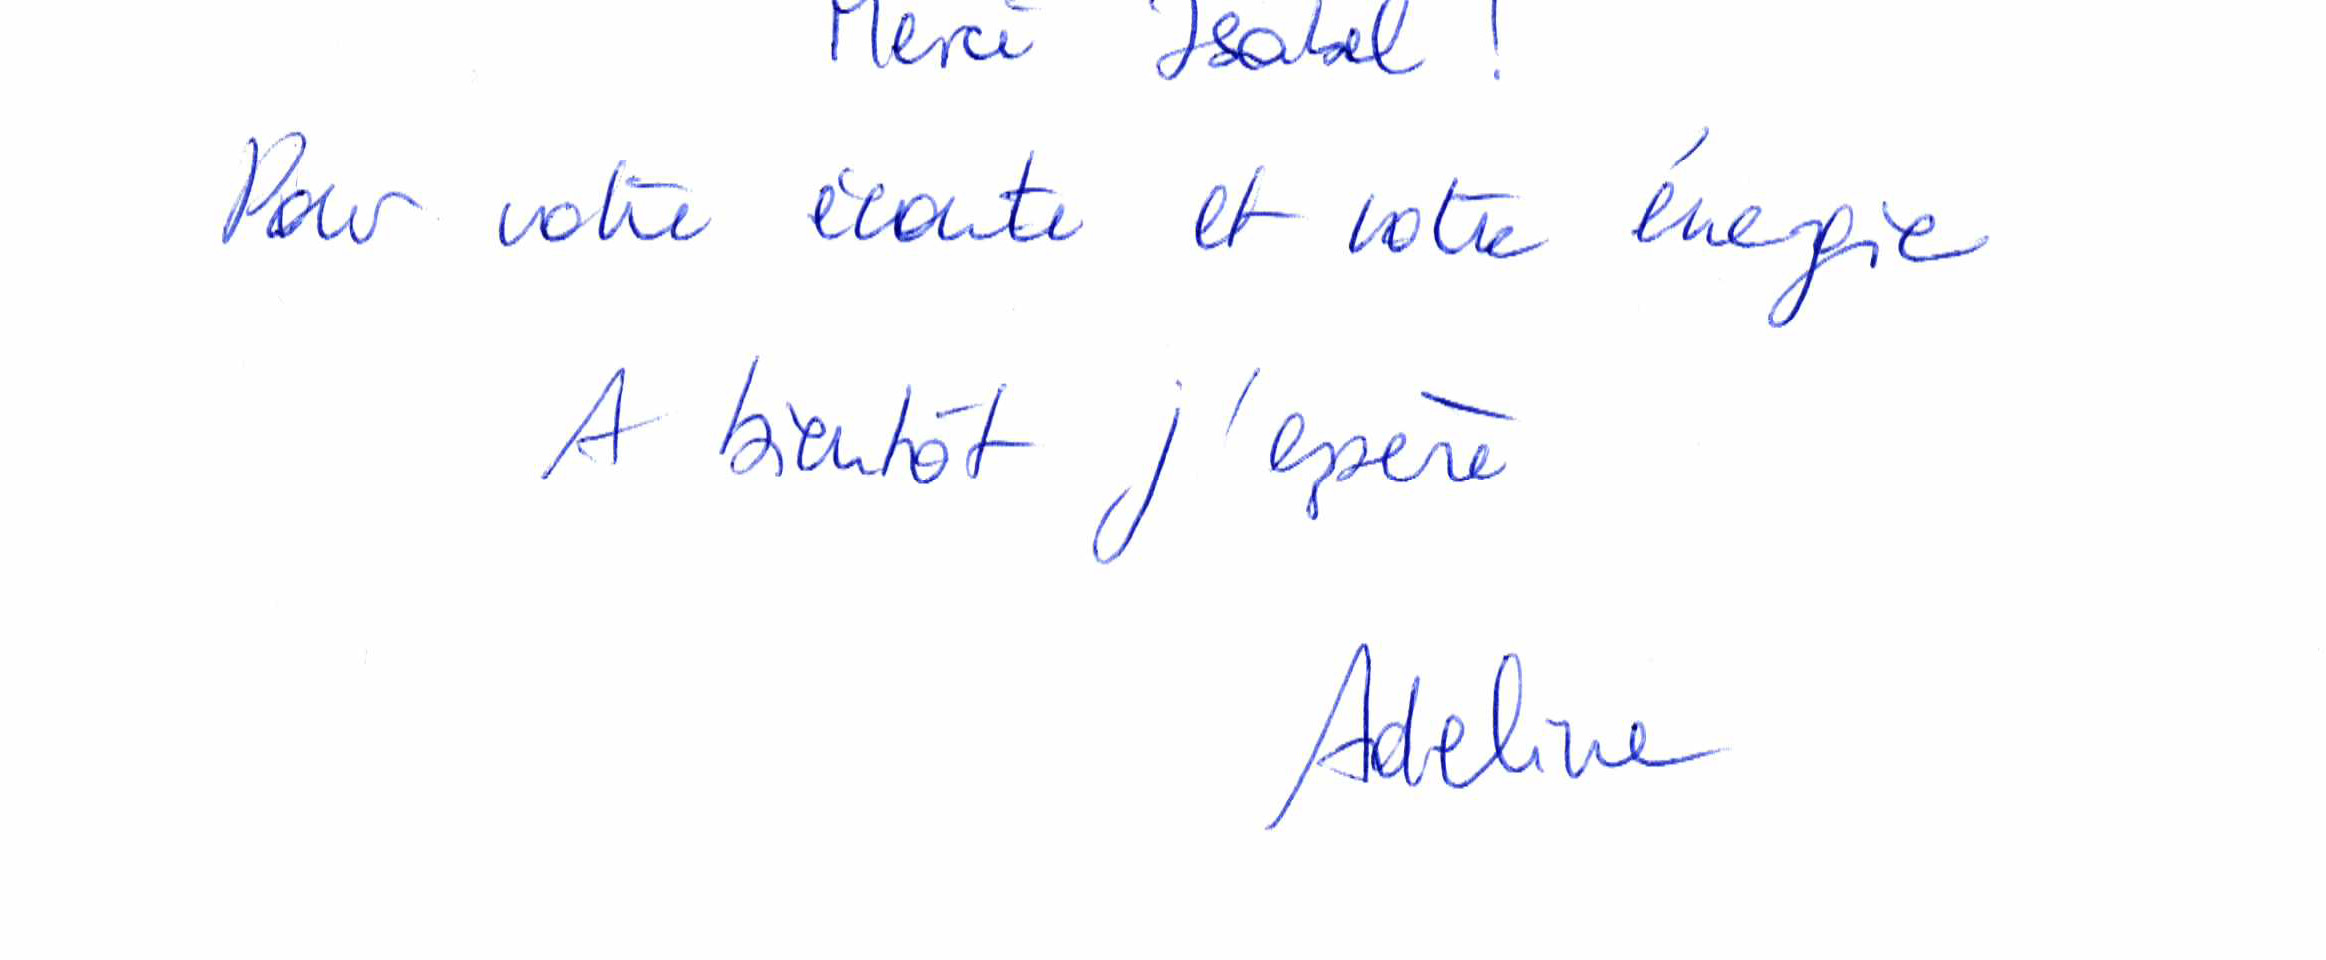 Merci Isabel !
Pour votre écoute et votre énergie
A bientôt j'espère
Adeline